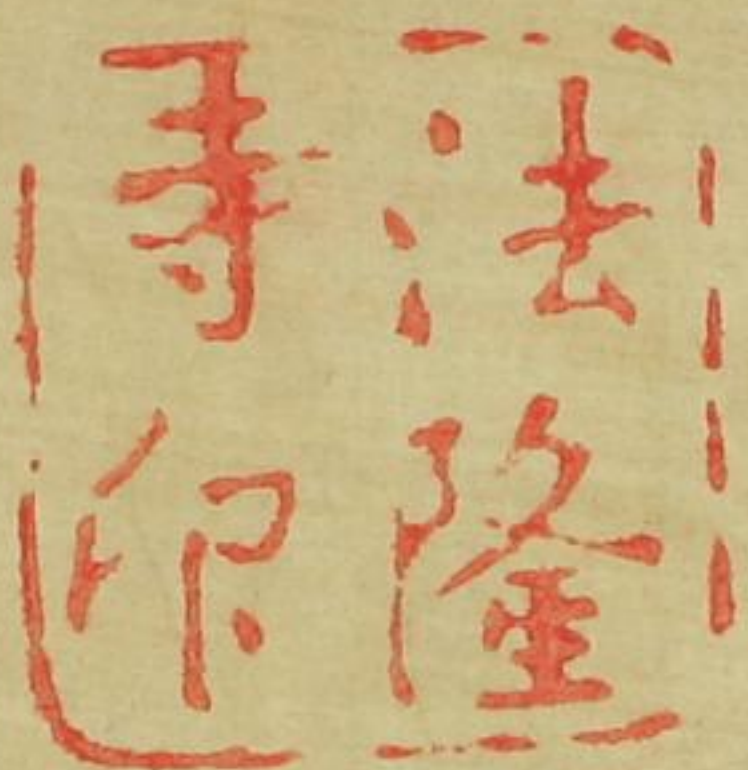 法隆
寺印